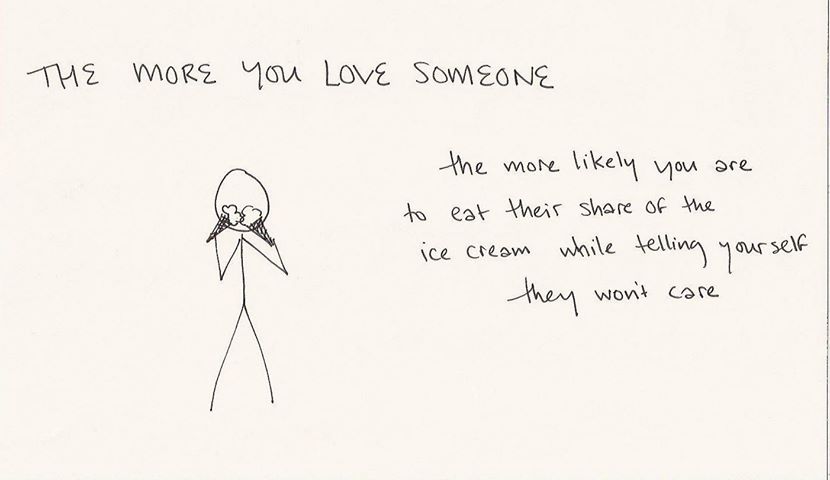 THE MORE YOU LOVE SOMEONE
the more likely you are
to eat their share of the
ice cream while telling yourself
they won't care